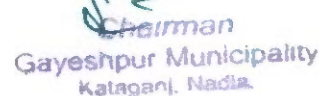 Chairman
Gayeshpur Municipality
Kataganj, Nadia.